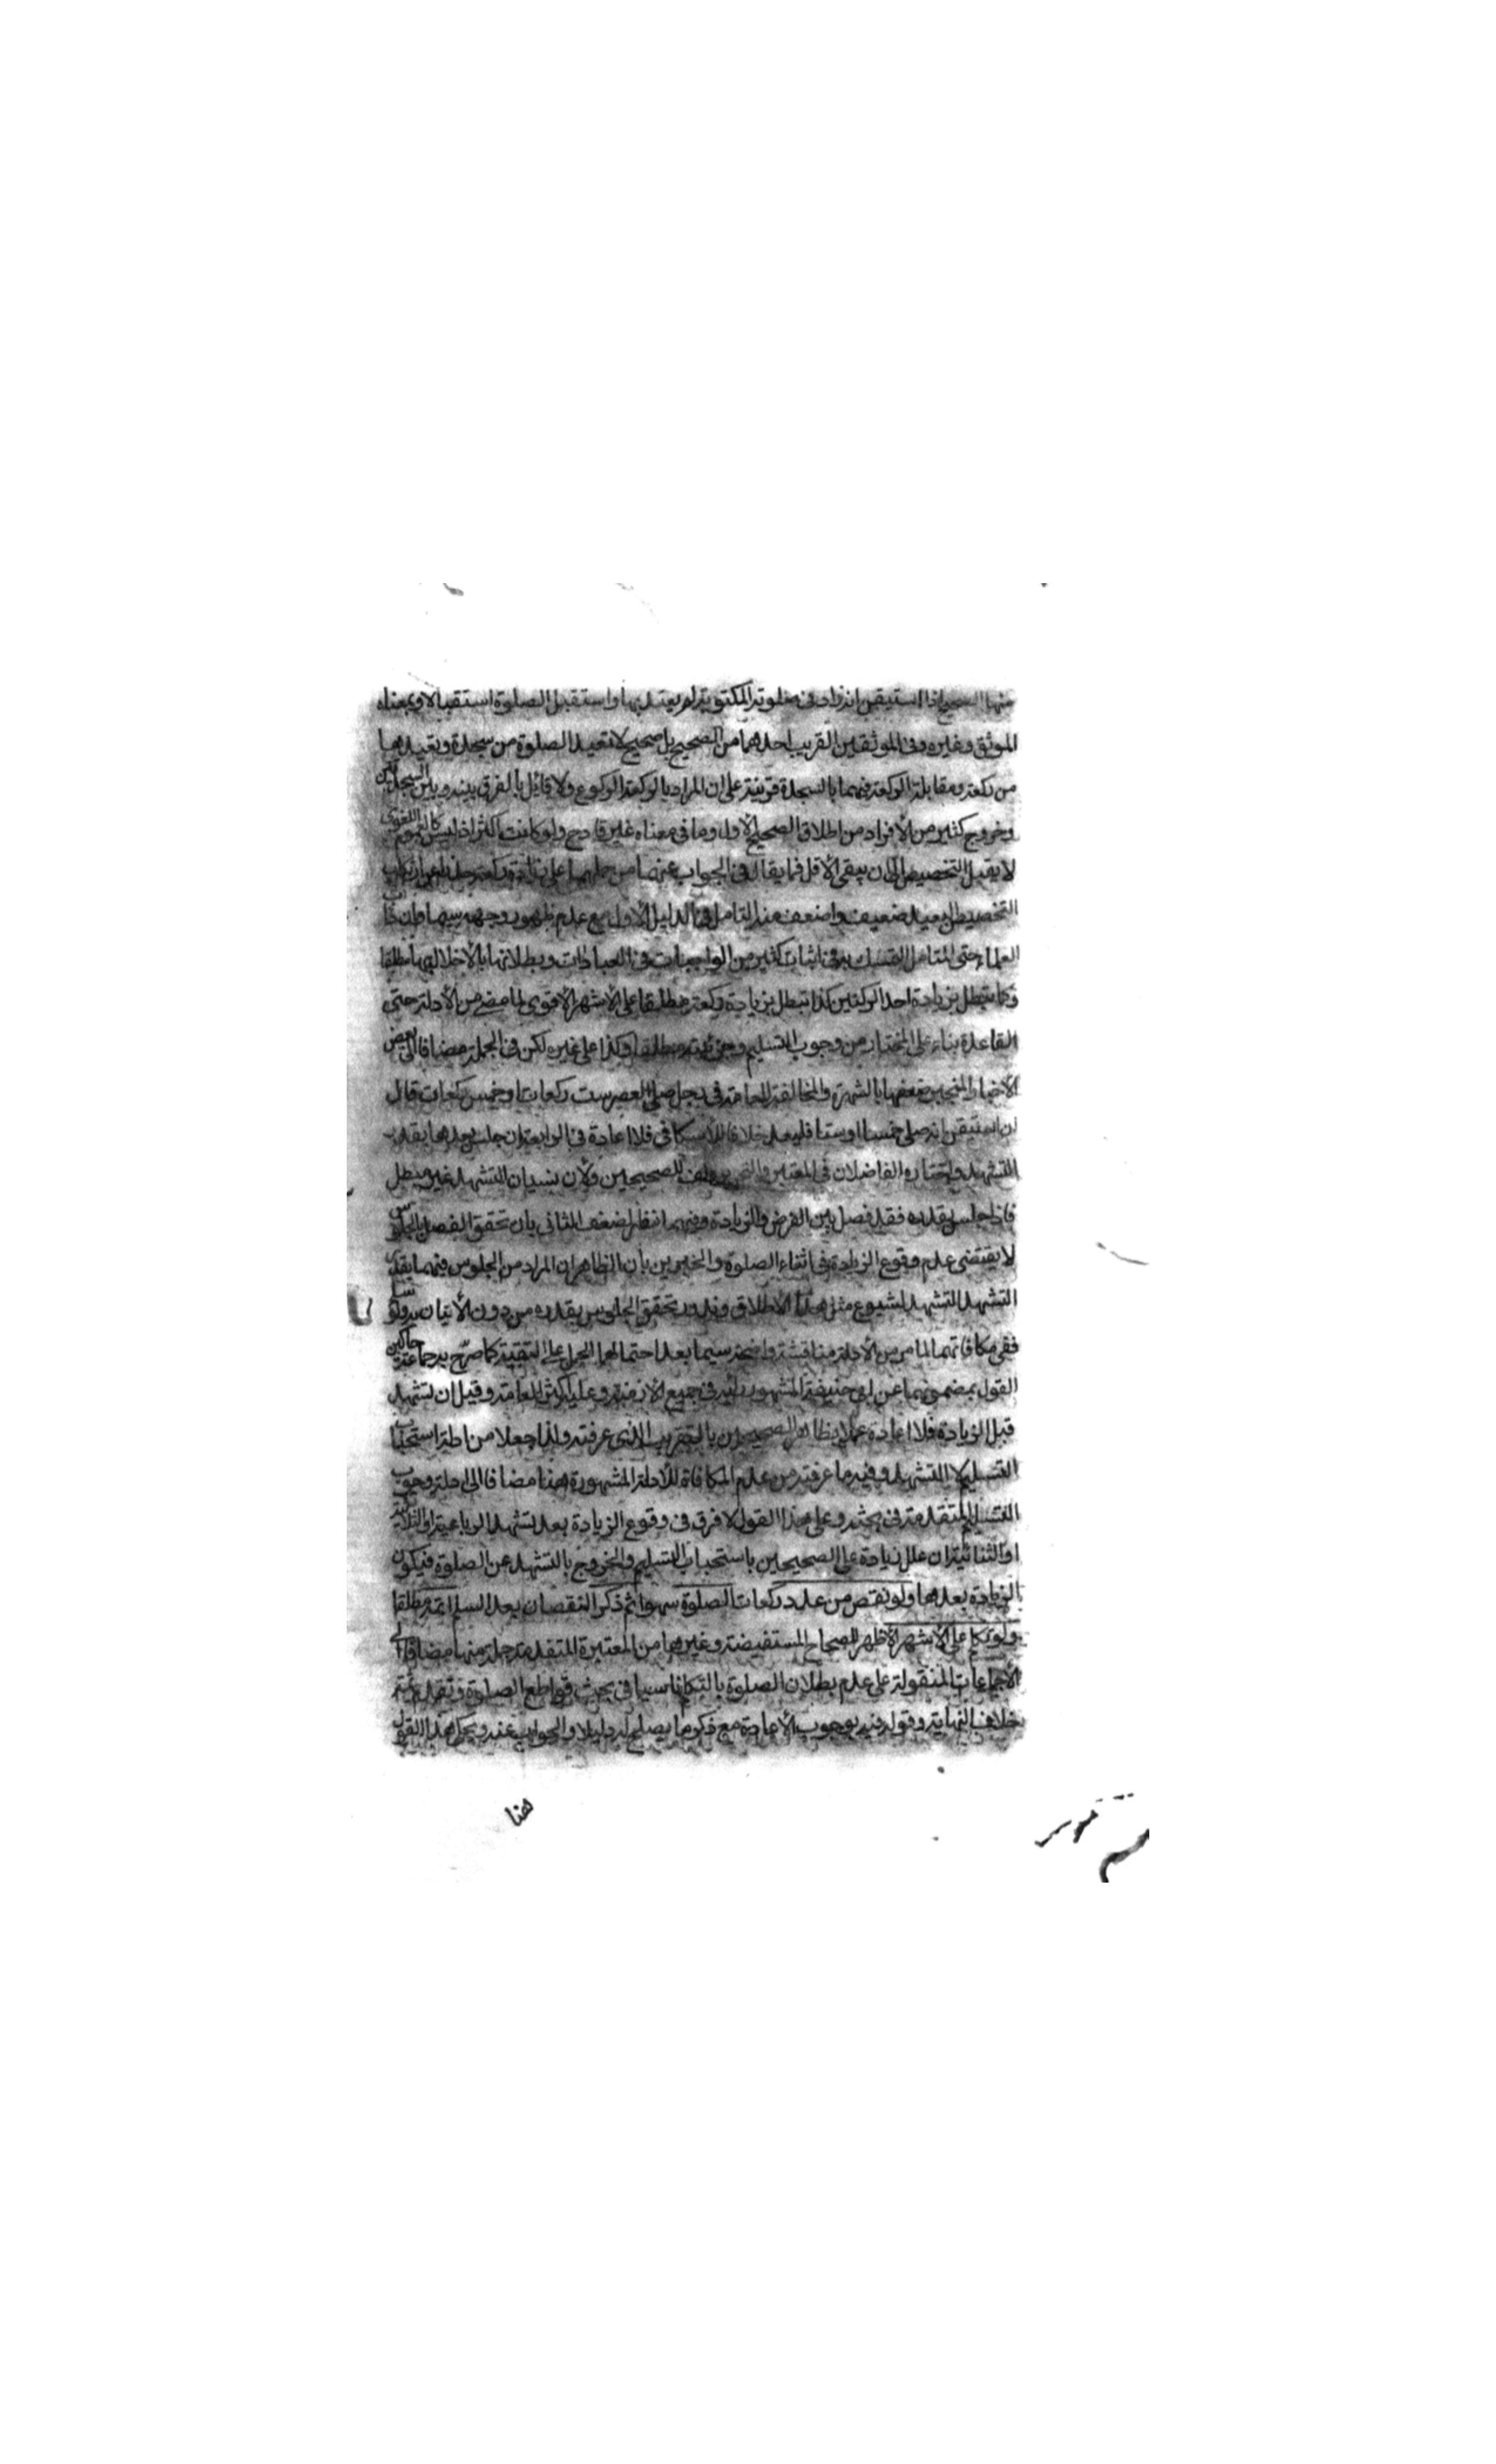 منها الصحيح اذا استيقن انه زاد في صلوته المكتوبة لم يعتد بها واستقبل الصلوة استقبالا وبمعناه
الموثق وغيره وفي الموثقين القريب احدهما من الصحيح بل صحيح لا تعيد الصلوة من سجدة وتعيدها
من ركعة ومقابلة الركعة فيهما بالسجدة قرينة على ان المراد بالركعة الركوع ولا قائل بالفرق بينه وبين السجدتين
وخروج كثير من الأفراد من اطلاق الصحيح الأول وما في معناه غير قادح ولو كانت اكثر اذ ليس كالعموم اللغوي
لا يقبل التخصيص الى ان يبقى الأقل فما يقال في الجواب عنها من حملها على زيادة ركعة حذرا عن ارتكاب
التخصيص البعيد ضعيف واضعف منه التامل في الدليل الأول مع عدم ظهور وجهه سيما وان داب
العلماء حتى المتامل التمسك به في اثبات كثير من الواجبات في العبادات وبطلانها بالأخلال بها مطلقا
وكما تبطل بزيادة احد الركنين كذا تبطل بزيادة ركعة مطلقا على الأشهر الأقوى لما مضى من الأدلة حتى
القاعدة بناء على المختار من وجوب التسليم وجزئيته مطلقا وكذا على غيره لكن في الجملة مضافا الى بعض
الأخبار المنجبر ضعفها بالشهرة والمخالفة للعامة في رجل صلى العصر ست ركعات او خمس ركعات قال
ان استيقن انه صلى خمسا او ستا فليعد خلافا للأسكافي فلا اعادة في الرابعة ان جلس بعدها بقدر
التشهد واختاره الفاضلان في المعتبر و للصحيحين ولأن نسيان التشهد غير مبطل
فاذا جلس بقدره فقد فصل بين الفرض والزيادة وفيهما نظر لضعف الثاني بان تحقق الفصل بالجلوس
لا يقتضى عدم وقوع الزيادة في اثناء الصلوة والخبرين بأن الظاهر ان المراد من الجلوس فيهما بقدر
التشهد التشهد لشيوع مثل هذا الاطلاق وندور تحقق الجلوس بقدره من دون الأتيان به ولو سلم
ففي مكافاتهما لما مر من الأدلة مناقشة واضحة سيما بعد احتمالهما الحمل على التقية كما صرح به جماعة حاكين
القول بمضمونهما عن ابي حنيفة المشهور رأيه في جميع الأزمنة وعليه اكثر العامة وقيل ان تشهد
قبل الزيادة فلا اعادة عملا بظاهر الصحيحين بالتقريب الذي عرفته ولذا جعلا من ادلة استحباب
التسليم لا التشهد وفيه ما عرفته من عدم المكافاة للأدلة المشهورة هنا مضافا الى ادلة وجوب
التسليم المتقدمة في بحثه وعلى هذا القول لا فرق في وقوع الزيادة بعد تشهد الرباعية او الثلاثية
او الثنائية ان علل زيادة على الصحيحين باستحباب التسليم والخروج بالتشهد عن الصلوة فيكون
الزيادة بعدها ولو نقص من عدد ركعات الصلوة سهوا ثم ذكر النقصان بعد السلم اتمه مطلقا
ولو تكلم على الأشهر الأظهر للصحاح المستفيضة وغيرها من المعتبرة المتقدمة جملة منها مضافا الى
الأجماعات المنقولة على عدم بطلان الصلوة بالتكلم ناسيا في بحث قواطع الصلوة وتقدم ثم
خلاف النهاية وقوله فيه بوجوب الأعادة مع ذكر ما يصلح له دليلا والجواب عنه ويحكى هذا القول
هنا